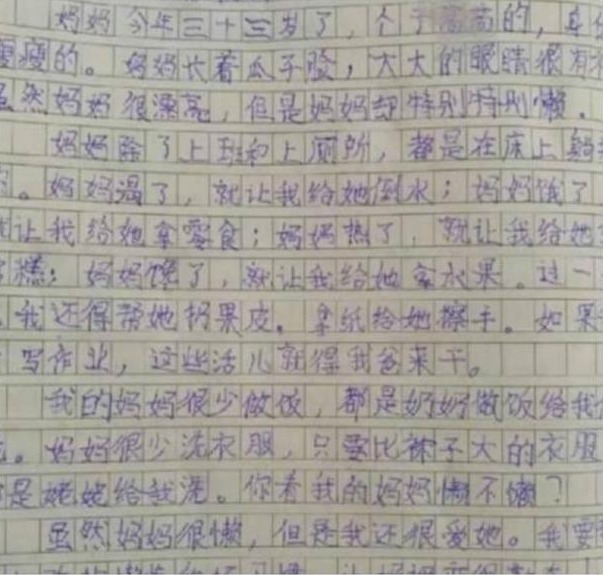 妈妈今年三十三岁了，个子高高的，身
瘦瘦的。妈妈长着瓜子脸，大大的眼睛很有
虽然妈妈很漂亮，但是妈妈却特别特别懒。
妈妈除了上班和上厕所，都是在床上躺
。妈妈渴了，就让我给她倒水；妈妈饿了
让我给她拿零食；妈妈热了，就让我给她
糕；妈妈馋了，就让我给她拿水果。过一
，我还得帮她扔果皮。拿纸给她擦手。如果
写作业，这些活儿就得我爸来干。
我的妈妈很少做饭，都是奶奶做饭给我
。妈妈很少洗衣服，只要比袜子大的衣服
是姥姥给我洗。你看我的妈妈懒不懒？
虽然妈妈很懒，但是我还很爱她。我要